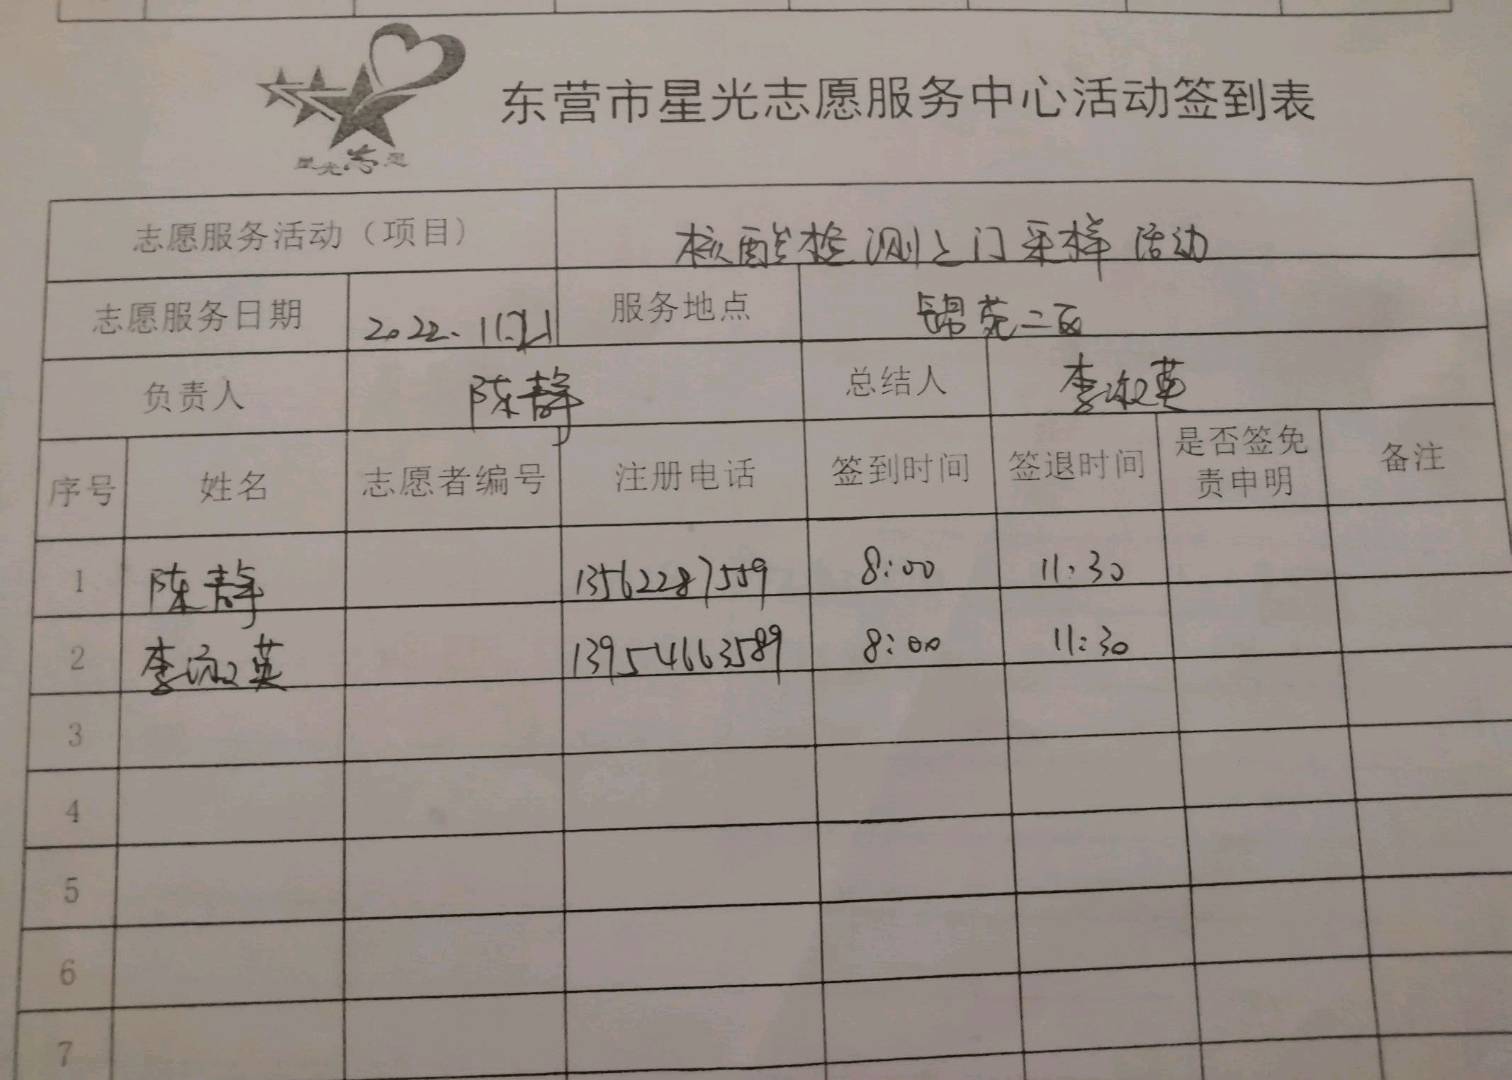 星光志愿
东营市星光志愿服务中心活动签到表
志愿服务活动（项目） 核酸检测上门采样活动
志愿服务日期 2022. 服务地点 锦苑二区
负责人 陈静 总结人 李淑英
序号 姓名 志愿者编号 注册电话 签到时间 签退时间 是否签免 备注
责申明
1 陈静 13562287559 8:00 11:30
2 李淑英 13954663589 8:00 11:30
3
4
5
6
7